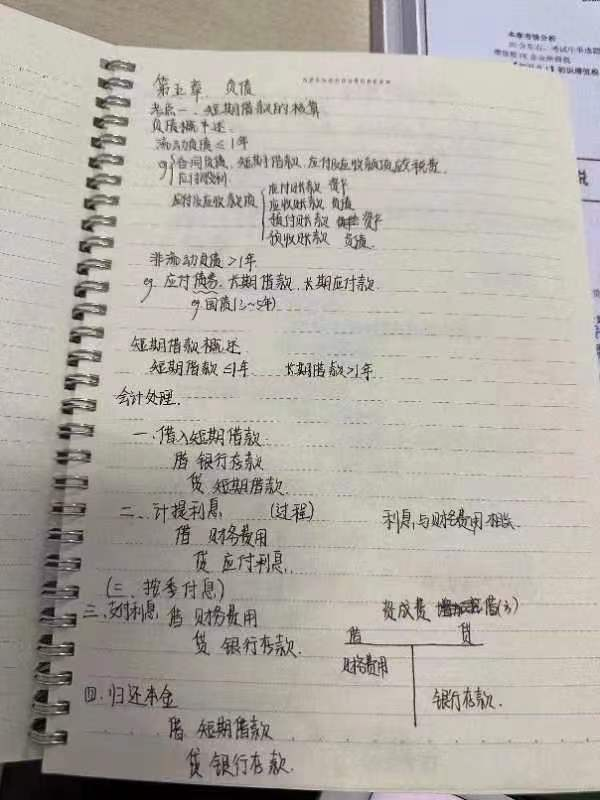 第五章 负债
考点一、短期借款的核算
负债概述
流动负债≤1年
eg 合同负债、短期借款、应付及应收款项、应交税费
应付股利
应付及应收款项
应付账款 资产
应收账款 负债
预付账款 资产
预收账款 负债
非流动负债>1年
eg 应付债券、长期借款、长期应付款
eg 国债(3~5年)
短期借款概述
短期借款≤1年 长期借款>1年
会计处理
一、借入短期借款
借 银行存款
贷 短期借款
二、计提利息 (过程) 利息与财务费用相关
借 财务费用
贷 应付利息
(三、按季付息)
三、支付利息 借 财务费用
贷 银行存款
资成费 借
借 贷
财务费用
银行存款
四、归还本金
借 短期借款
贷 银行存款
本章考情分析